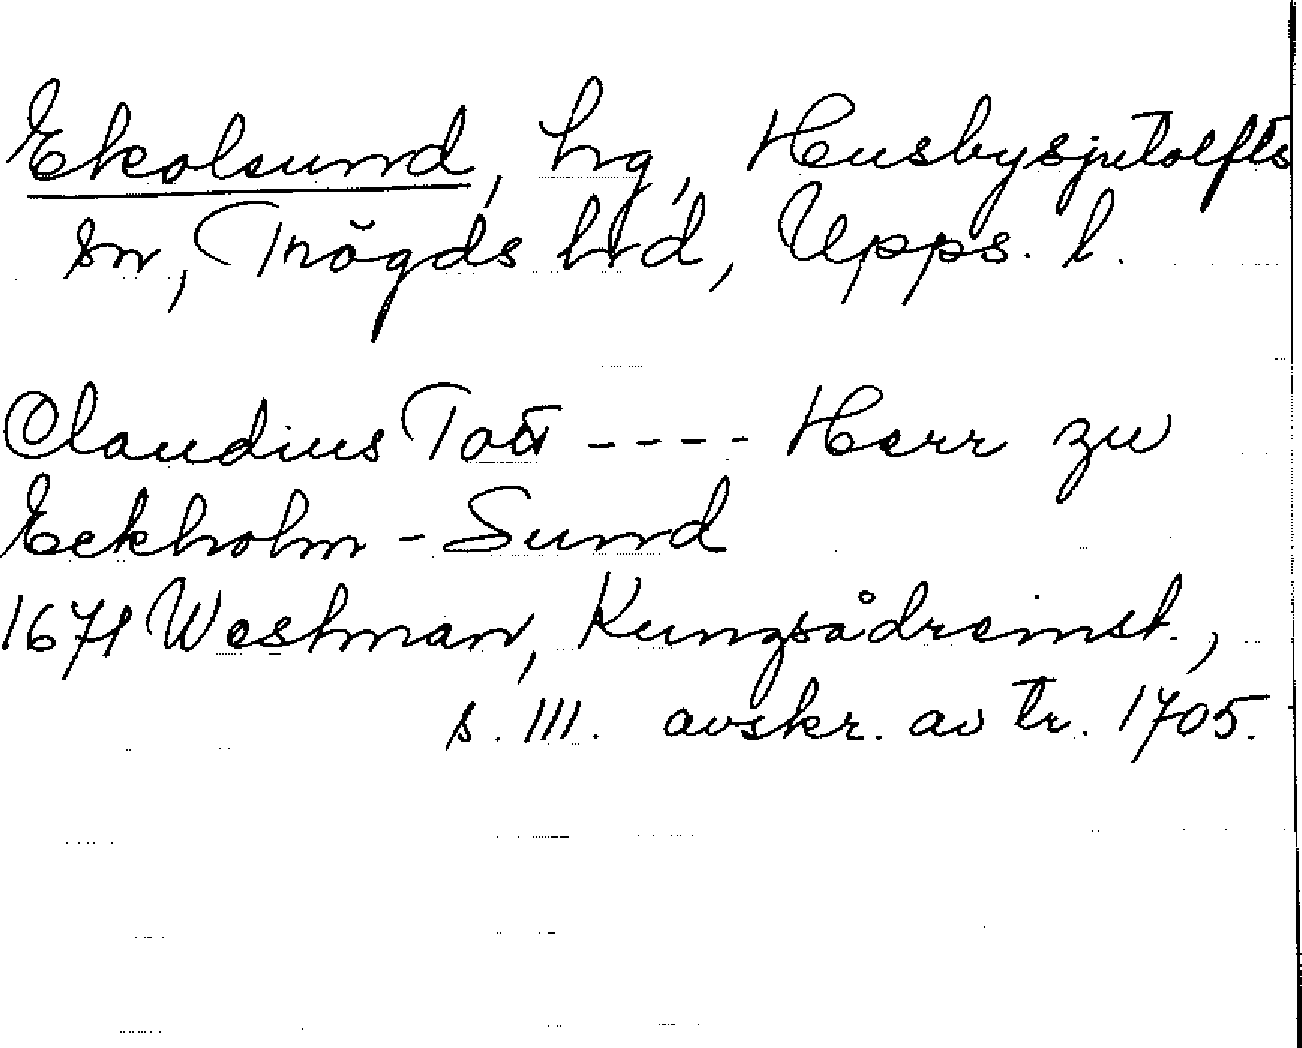 Ekolsund, hg, Husbysjutolfts
sn, Trögds hd, Upps. l.
Claudius Tott ---- Herr zu
Eckholm - Sund
1671 Westman, Kungsådreinst.,
s. 111. avskr. av tr. 1705.